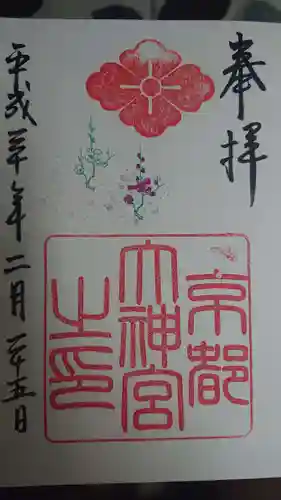 奉拝
京都
大神宮
之印
平成三十年二月二十五日